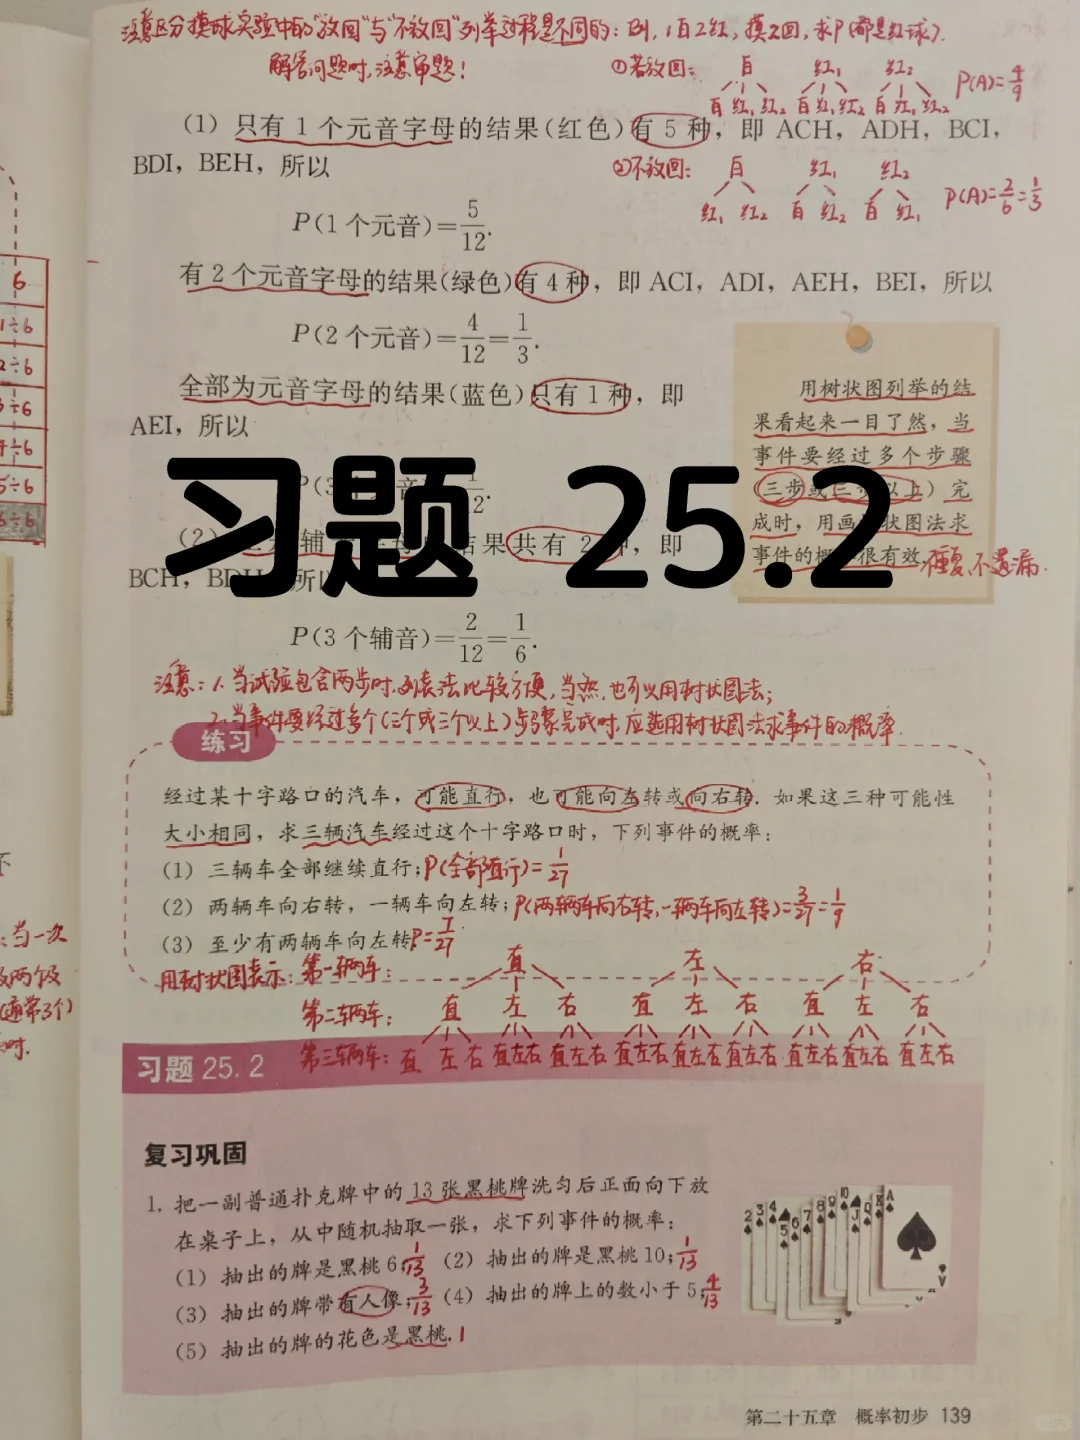 注意区分摸球实验中的"放回"与"不放回"列举过程是不同的：例，1白2红，摸2回，求P(都是红球).
解答问题时，注意审题！
①若放回：
白 红₁ 红₂
白 红₁ 红₂ 白 红₁ 红₂ 白 红₁ 红₂
P(A)=4/9
(1) 只有1个元音字母的结果(红色)有5种，即 ACH，ADH，BCI，
BDI，BEH，所以
②不放回：
白 红₁ 红₂
红₁ 红₂ 白 红₂ 白 红₁
P(A)=2/6=1/3
P(1个元音)=5/12.
有2个元音字母的结果(绿色)有4种，即 ACI，ADI，AEH，BEI，所以
P(2个元音)=4/12=1/3.
全部为元音字母的结果(蓝色)只有1种，即
AEI，所以
用树状图列举的结
果看起来一目了然，当
事件要经过多个步骤
(三步或三步以上)完
成时，用画树状图法求
事件的概率很有效.
不重复、不遗漏.
习题 25.2
共有2种，即
BCH，BDH，所以
P(3个辅音)=2/12=1/6.
注意：1.当试验包含两步时，列表法比较方便，当然，也可以用树状图法；
2.当事件要经过多个(三个或三个以上)步骤完成时，应选用树状图法求事件的概率.
练习
经过某十字路口的汽车，可能直行，也可能向左转或向右转. 如果这三种可能性
大小相同，求三辆汽车经过这个十字路口时，下列事件的概率：
(1) 三辆车全部继续直行；P(全部直行)=1/27
(2) 两辆车向右转，一辆车向左转；P(两辆车向右转，一辆车向左转)=3/27=1/9
(3) 至少有两辆车向左转. P=7/27
用树状图表示：第一辆车： 直 左 右
第二辆车： 直 左 右 直 左 右 直 左 右
第三辆车： 直 左 右 直左右 直左右 直左右 直左右 直左右 直左右 直左右 直左右
习题 25.2
复习巩固
1. 把一副普通扑克牌中的13张黑桃牌洗匀后正面向下放
在桌子上，从中随机抽取一张，求下列事件的概率：
(1) 抽出的牌是黑桃6；1/13 (2) 抽出的牌是黑桃10；1/13
(3) 抽出的牌带有人像；3/13 (4) 抽出的牌上的数小于5；4/13
(5) 抽出的牌的花色是黑桃. 1
2 3 4 5 6 7 8 9 10 J Q K A
第二十五章 概率初步 139
6
1÷6
2÷6
3÷6
4÷6
5÷6
6÷6
当一次
两个及
(通常3个)
时.